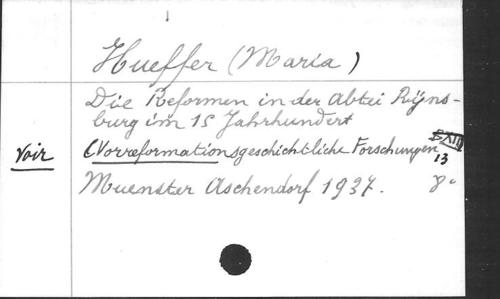 Hueffer (Maria)
Die Reformen in der Abtei Rijns-
burg im 15 Jahrhundert
voir (Vorreformationsgeschichtliche Forschungen
13
Muenster Aschendorf 1937. 8°